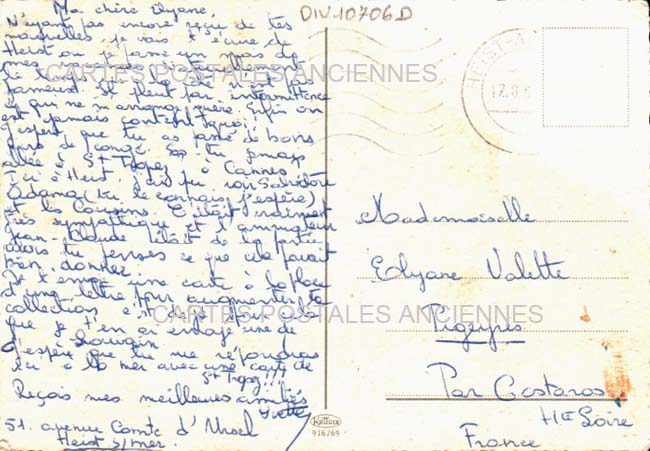 DIV10706D
Ma chère Elyane.
N'ayant pas encore reçu de tes
nouvelles, je vais t'écrire de
Heist où je passe un mois de
mes
CARTES POSTALES ANCIENNES
fameux. Il pleut par intermittence
et qui ne m'arrange guère. Enfin on
est jamais content quoi!
J'espère que tu as passé de bons
jours de congé. Es-tu
allée à St Tropez, à Cannes
Ici à Heist, j'ai pu voir Salvatore
Adamo (tu le connais j'espère)
et les Cousins. C'était vraiment
très sympathique et l'animateur
Jean-Claude était de la partie
alors tu penses ce que cela pouvait
bien donner.
Je t'envoie une carte à la place
d'une lettre pour augmenter ta
collection
CARTES POSTALES ANCIENNES
que je t'en ai envoyé une de
Louvain
J'espère que tu me répondras
ici à la mer avec une carte de
St Tropez!!!
Reçois mes meilleures amitiés
Yvette
51. avenue Comte d'Ursel
Heist s/mer.
HEIST-
12.8.6
Mademoiselle
Elyane Valette
Pigeyres
Par Costaros
Hte Loire
France
Kruger
916/69